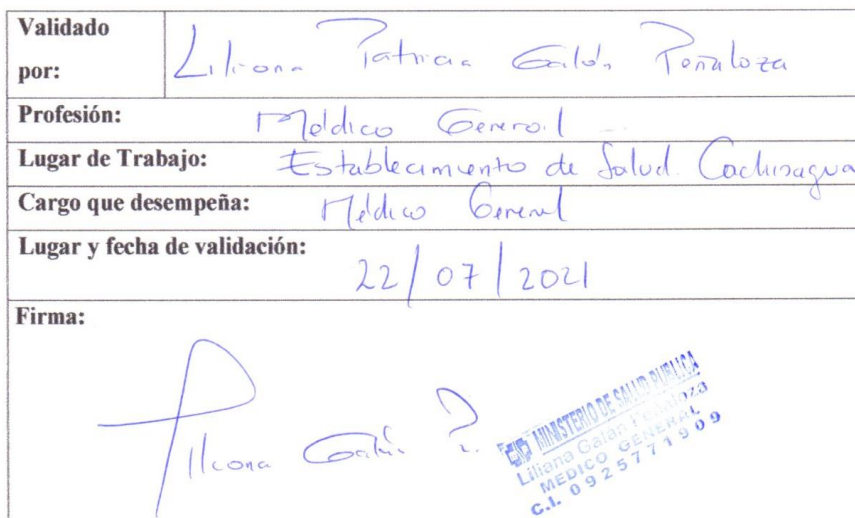 Validado por: Liliana Patricia Galán Peñaloza
Profesión: Médico General
Lugar de Trabajo: Establecimiento de Salud Cachisagua
Cargo que desempeña: Médico General
Lugar y fecha de validación:
22/07/2021
Firma:
Liliana Galán P.
MINISTERIO DE SALUD PUBLICA
Liliana Galan Peñaloza
MEDICO GENERAL
C.I. 0925771909